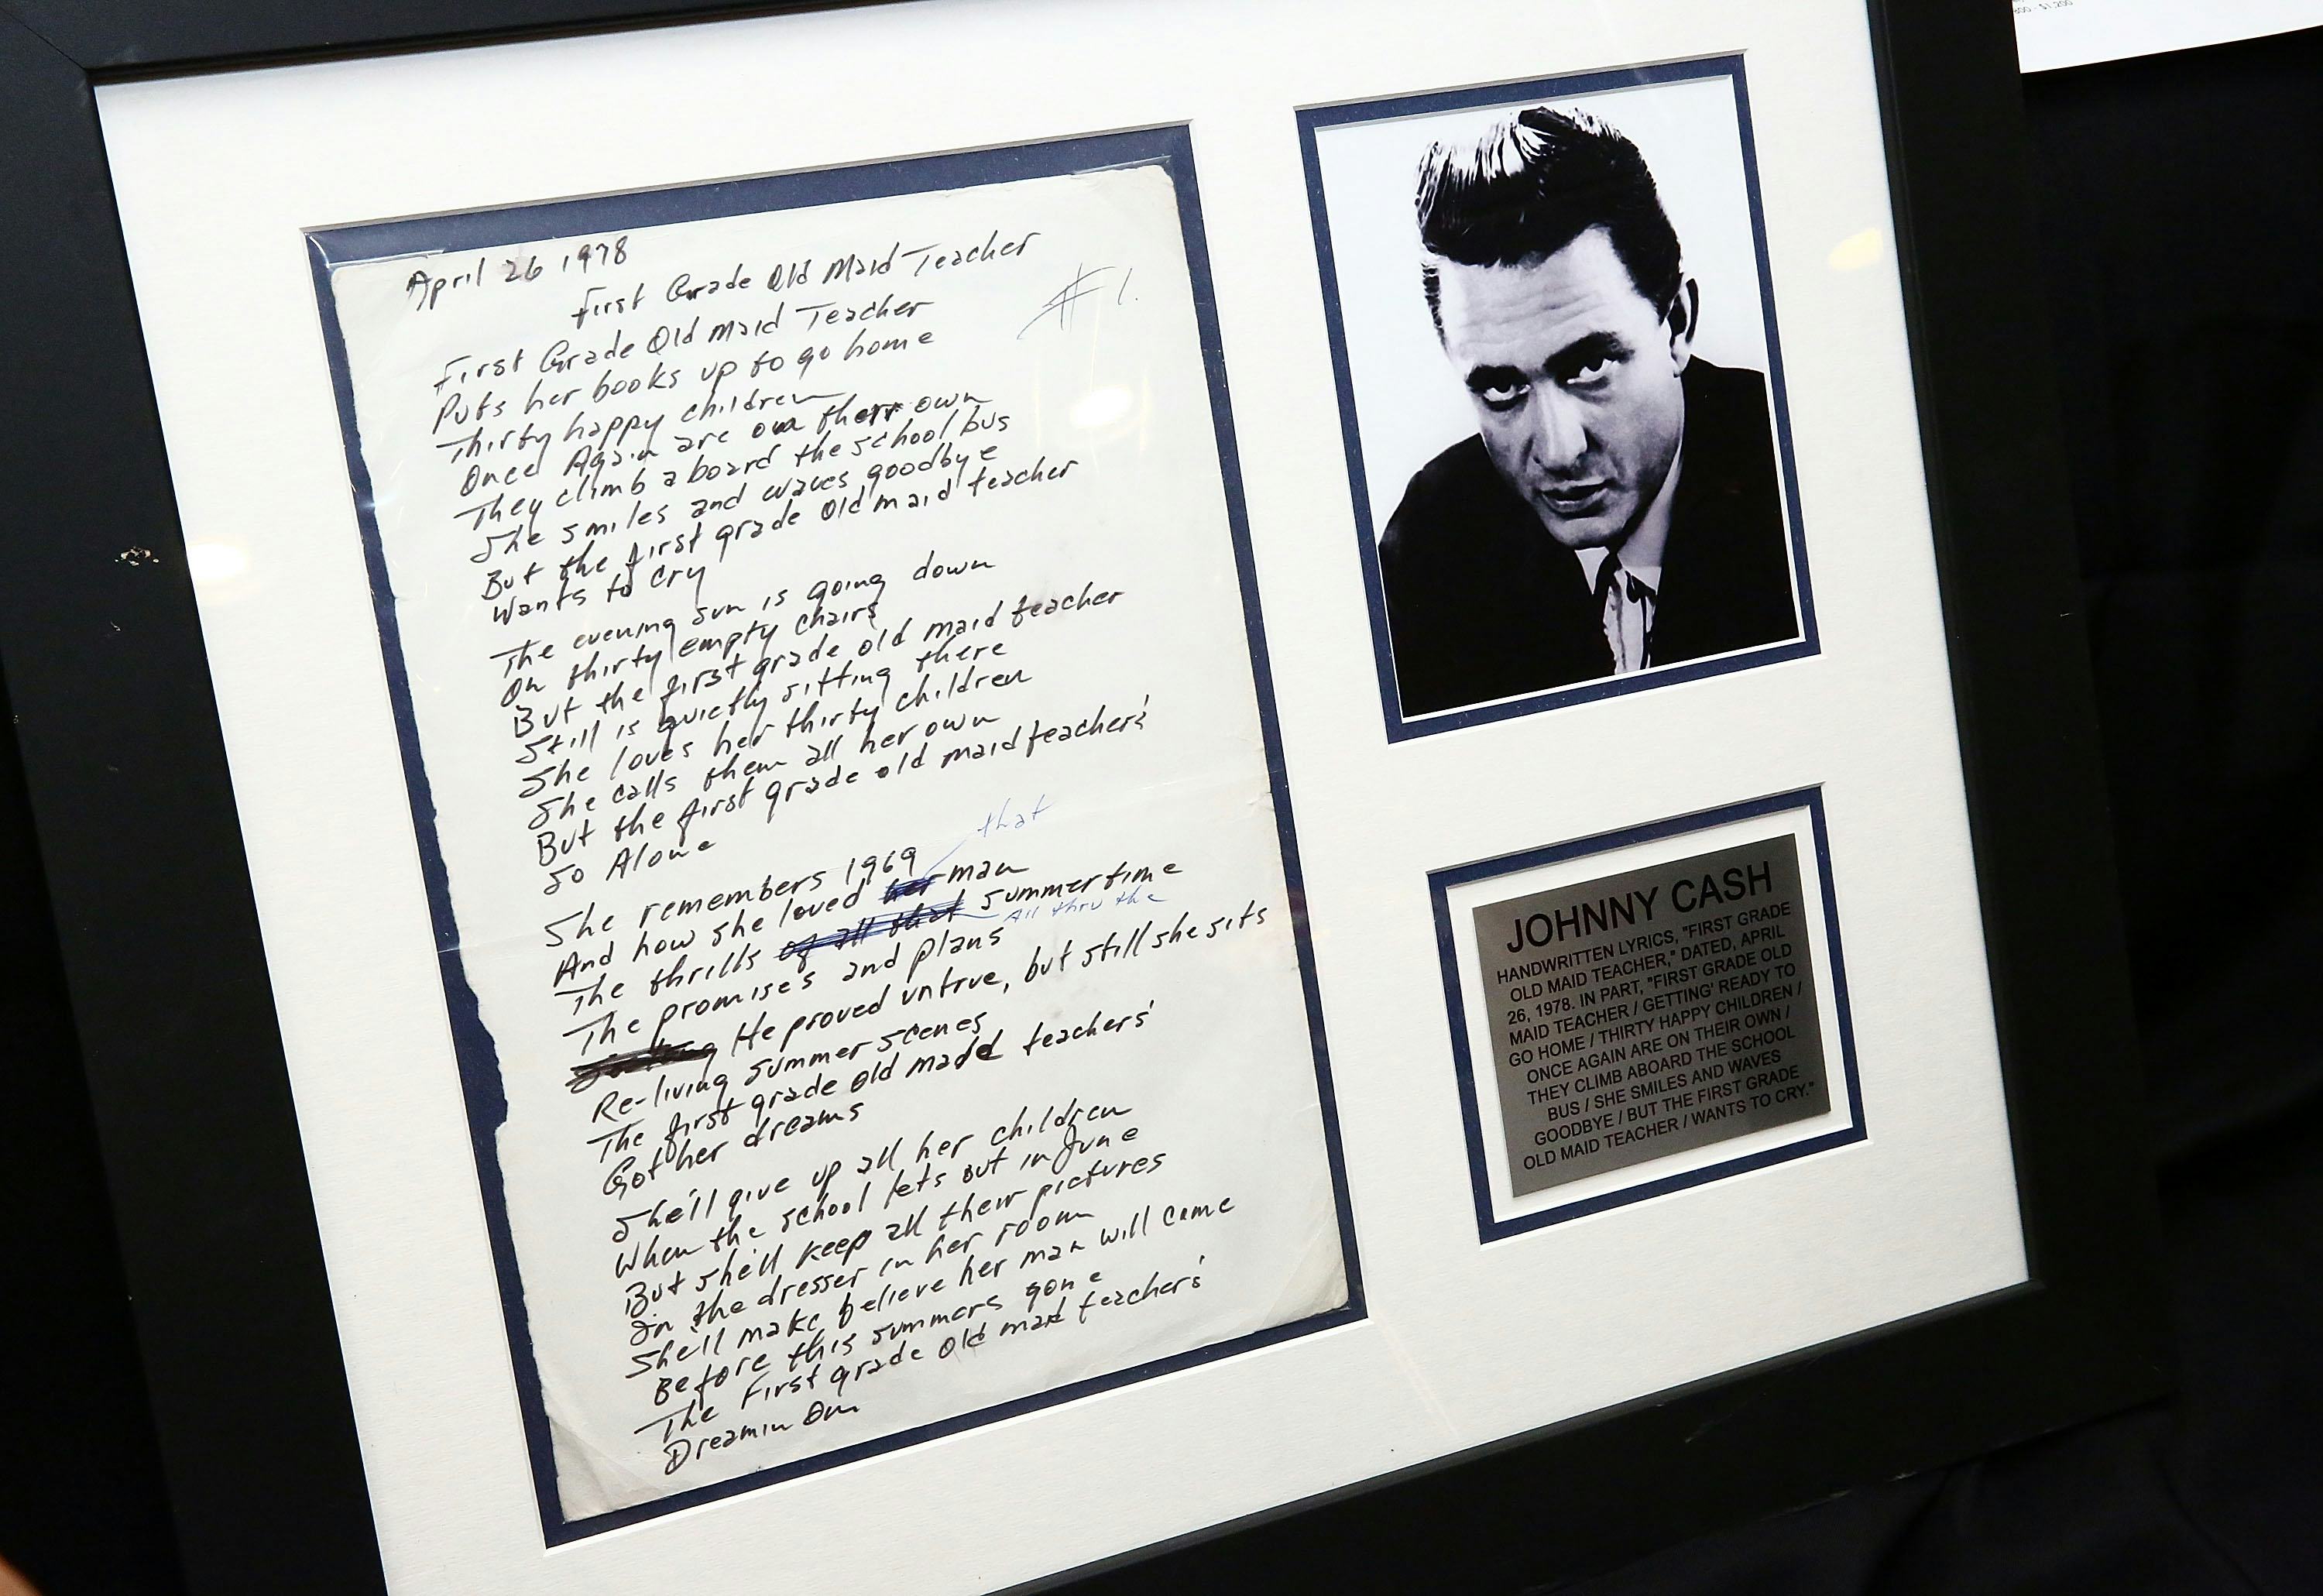 April 26 1978
First Grade Old Maid Teacher
#1.
First Grade Old Maid Teacher
Puts her books up to go home
Thirty happy children
Once Again are on their own
They climb aboard the school bus
She smiles and waves goodbye
But the first grade old maid teacher
Wants to cry
The evening sun is going down
On thirty empty chairs
But the first grade old maid teacher
Still is quietly sitting there
She loves her thirty children
She calls them all her own
But the first grade old maid teacher's
So Alone
that
She remembers 1969
And how she loved her man
The thrills of all that summertime
All thru the
The promises and plans
He proved untrue, but still she sits
Re-living summer scenes
The first grade old maid teachers'
Got her dreams
She'll give up all her children
When the school lets out in June
But she'll keep all their pictures
In the dresser in her room
She'll make believe her man will come
Before this summers gone
The First grade old maid teacher's
Dreamin On
JOHNNY CASH
HANDWRITTEN LYRICS, "FIRST GRADE
OLD MAID TEACHER," DATED, APRIL
26, 1978. IN PART, "FIRST GRADE OLD
MAID TEACHER / GETTING' READY TO
GO HOME / THIRTY HAPPY CHILDREN /
ONCE AGAIN ARE ON THEIR OWN /
THEY CLIMB ABOARD THE SCHOOL
BUS / SHE SMILES AND WAVES
GOODBYE / BUT THE FIRST GRADE
OLD MAID TEACHER / WANTS TO CRY."